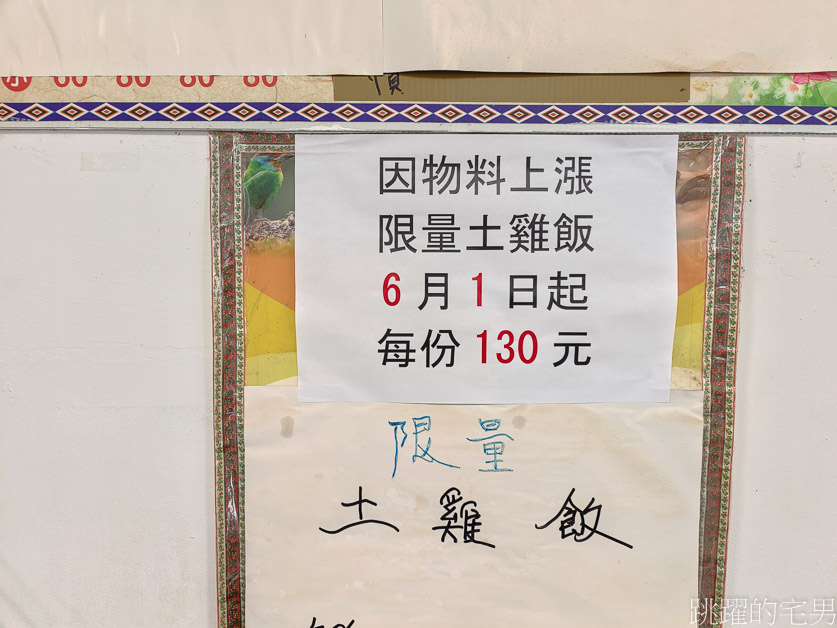 60 80 80 80
因物料上漲
限量土雞飯
6月1日起
每份130元
限量
土雞飯
跳躍的宅男